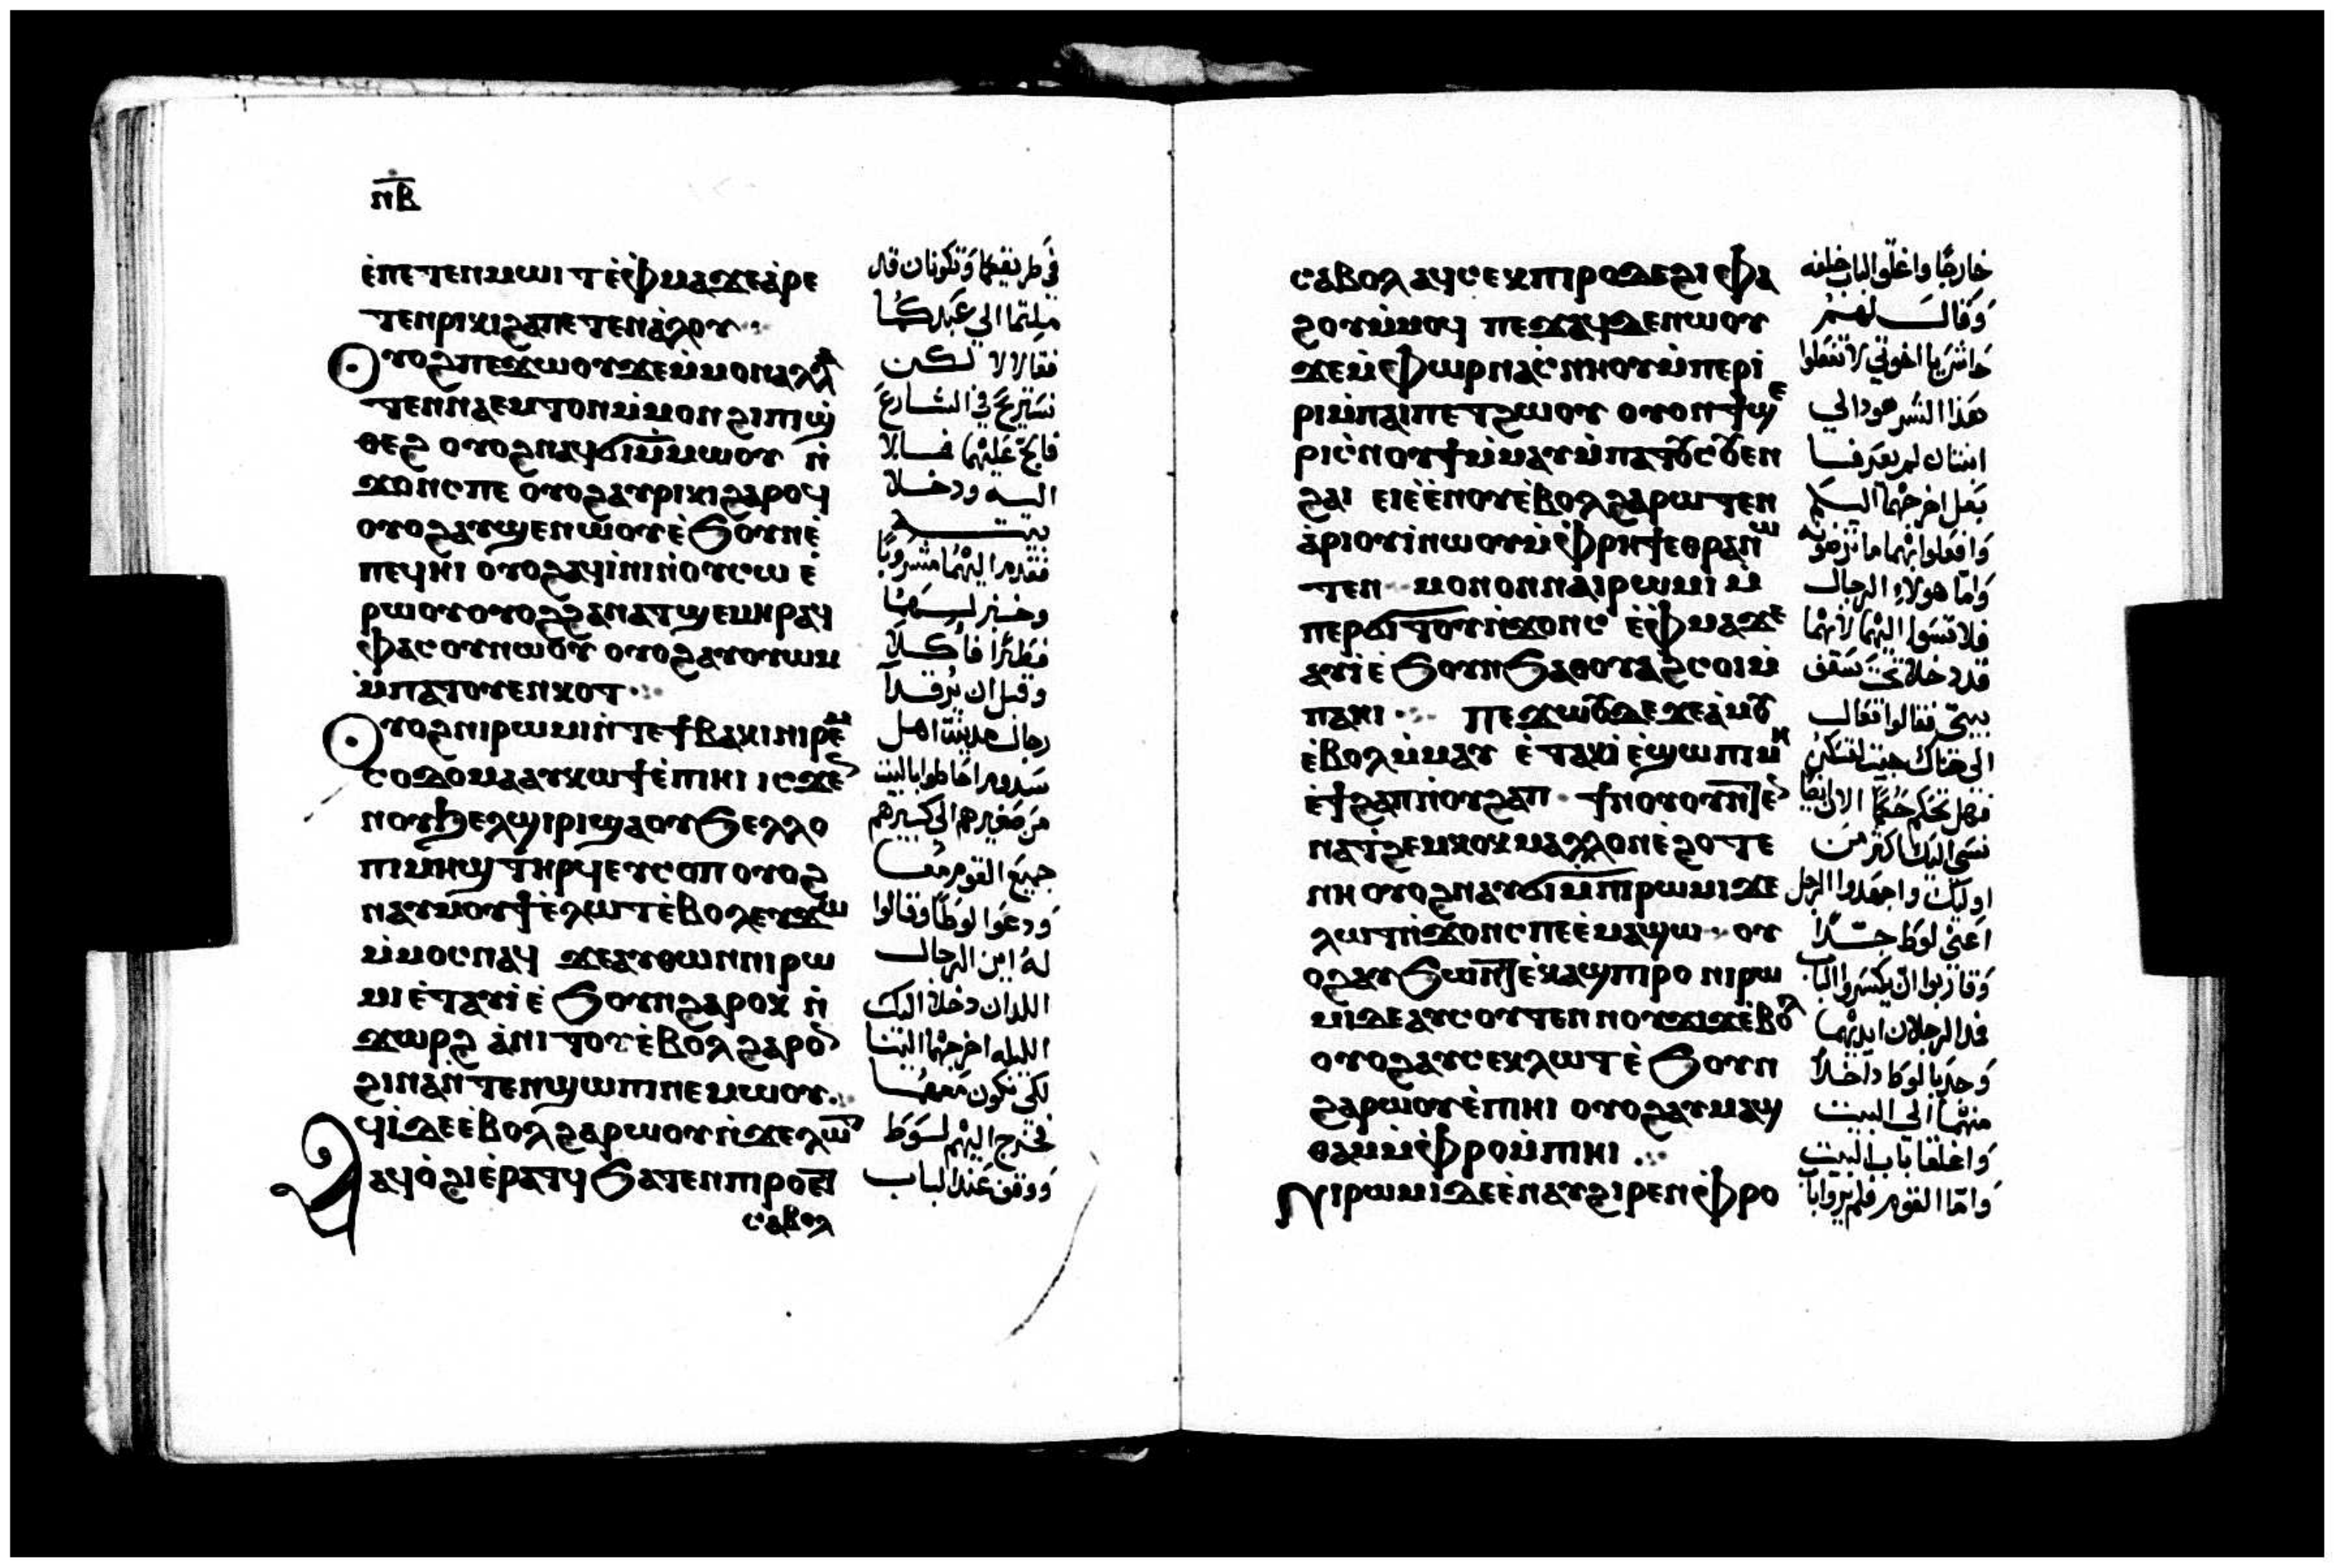 ⲛ̅ⲃ̅
ⲉ̀ⲡⲉⲧⲉⲛⲙⲱⲓⲧ ⲉ̀ⲫⲙⲁ ϫⲉ ⲁ̀ⲣⲉ
ⲧⲉⲛⲣⲓⲕⲓ ϩⲁ ⲡⲉⲧⲉⲛⲁ̀ⲗⲟⲩ
ⲟⲩⲟϩ ⲡⲉϫⲱⲟⲩ ϫⲉ ⲙ̀ⲙⲟⲛ ⲁⲗⲗⲁ
ⲧⲉⲛⲛⲁⲉⲙⲧⲟⲛ ⲙ̀ⲙⲟⲛ ϩⲓ ⲡⲓϣ
ⲑⲉϩ ⲟⲩⲟϩ ⲛⲁϥϭⲓ ⲙ̀ⲙⲱⲟⲩ ⲛ̀
ϫⲟⲛⲥ ⲡⲉ ⲟⲩⲟϩ ⲁⲩⲣⲓⲕⲓ ϩⲁⲣⲟϥ
ⲟⲩⲟϩ ⲁⲩϣⲉⲛⲱⲟⲩ ⲉ̀ϧⲟⲩⲛ ⲉ̀
ⲡⲉϥⲏⲓ ⲟⲩⲟϩ ⲁϥⲓ̀ⲛⲓ ⲛ̀ⲟⲩⲥⲱ ⲉ̀
ⲣⲱⲟⲩ ⲟⲩⲟϩ ϩⲁⲛⲁⲧϣⲉⲙⲏⲣ ⲁϥ
ⲫⲁⲥⲟⲩ ⲛⲱⲟⲩ ⲟⲩⲟϩ ⲁⲩⲟⲩⲱⲙ
ⲙ̀ⲡⲁⲧⲟⲩⲉⲛⲕⲟⲧ
ⲟⲩⲟϩ ⲛⲓⲣⲱⲙⲓ ⲛ̀ⲧⲉ ϯⲃⲁⲕⲓ ⲛⲓⲣⲉⲙ
ⲥⲟⲇⲟⲙⲁ ⲁⲩⲕⲱϯ ⲉ̀ⲡⲓⲏⲓ ⲓⲥϫⲉⲛ
ⲛⲟⲩϧⲉⲗϣⲓⲣⲓ ϣⲁ ⲟⲩϧⲉⲗⲗⲟ
ⲡⲓⲙⲏϣ ⲧⲏⲣϥ ⲉⲩⲥⲟⲡ ⲟⲩⲟϩ
ⲛⲁⲩⲙⲟⲩϯ ⲉ̀ⲗⲱⲧ ⲉ̀ⲃⲟⲗ ⲉⲩϫⲱ
ⲙ̀ⲙⲟⲥ ⲛⲁϥ ϫⲉ ⲁⲩⲑⲱⲛ ⲛⲓⲣⲱ
ⲙⲓ ⲉ̀ⲧⲁⲩⲓ̀ ⲉ̀ϧⲟⲩⲛ ϩⲁⲣⲟⲕ ⲛ̀
ϫⲱⲣϩ ⲁ̀ⲛⲓⲧⲟⲩ ⲉ̀ⲃⲟⲗ ϩⲁⲣⲟⲛ
ϩⲓⲛⲁ ⲛ̀ⲧⲉⲛϣⲱⲡⲓ ⲛⲉⲙⲱⲟⲩ
ⲁϥⲓ̀ ⲇⲉ ⲉ̀ⲃⲟⲗ ϩⲁⲣⲱⲟⲩ ⲛ̀ϫⲉ ⲗⲱⲧ
ⲁϥⲟ̀ϩⲓ ⲉ̀ⲣⲁⲧϥ ϧⲁⲧⲉⲛ ⲡⲓⲣⲟ ⲛ
ⲥⲁⲃⲟⲗ
في طريقيكما وتكونان قد
ملتما الى عبدكما
فقالا لا لكن
نستريح في الشارع
فالح عليهما فمالا
اليه ودخلا
بيته
فقدم اليهما مشروبًا
وخبز لهما
فطيرًا فأكلا
وقبل ان يرقدا
رجال مدينة اهل
سدوم احاطوا بالبيت
من صغيرهم الى كبيرهم
جميع القوم معًا
ودعوا لوطًا وقالوا
له اين الرجال
اللدان دخلا اليك
الليله اخرجهما الينا
لكى نكون معهما
فخرج اليهم لوط
ووقف عند الباب
ⲥⲁⲃⲟⲗ ⲁϥⲥⲉⲕ ⲡⲓⲣⲟ ⲇⲉ ϩⲓ ⲫⲁ
ϩⲟⲩ ⲙ̀ⲙⲟϥ ⲡⲉϫⲁϥ ⲇⲉ ⲛⲱⲟⲩ
ϫⲉ ⲙ̀ⲫⲱⲣ ⲛⲁⲥⲛⲏⲟⲩ ⲙ̀ⲡⲉⲣⲓ̀
ⲣⲓ ⲙ̀ⲡⲁⲓⲡⲉⲧϩⲱⲟⲩ ⲟⲩⲟⲛϯ ϣⲉ
ⲣⲓ ⲥ̀ⲛⲟⲩϯ ⲙ̀ⲙⲁⲩ ⲙ̀ⲡⲁⲧⲟⲩⲥⲟⲩⲉⲛ
ϩⲁⲓ ⲉⲓⲉ̀ⲉ̀ⲛⲟⲩ ⲉ̀ⲃⲟⲗ ϩⲁⲣⲱⲧⲉⲛ
ⲁ̀ⲣⲓⲟⲩⲓ̀ ⲛⲱⲟⲩ ⲙ̀ⲫⲣⲏϯ ⲉⲑⲣⲁⲛⲱ
ⲧⲉⲛ ⲙⲟⲛⲟⲛ ⲛⲁⲓⲣⲱⲙⲓ ⲙ̀
ⲡⲉⲣϭⲓⲧⲟⲩ ⲛ̀ϫⲟⲛⲥ ⲉ̀ⲫⲙⲁ ϫⲉ
ⲁⲩⲓ̀ ⲉ̀ϧⲟⲩⲛ ϧⲁ ⲑⲟⲩⲁϩⲥⲟⲓ ⲙ̀
ⲡⲁⲏⲓ ⲡⲉϫⲱⲟⲩ ⲇⲉ ϫⲉ ⲁ̀ⲙⲟⲩ
ⲉ̀ⲃⲟⲗ ⲙ̀ⲙⲁⲩ ⲉ̀ⲧⲁⲕⲓ̀ ⲉ̀ϣⲱⲡⲓ ⲙⲏ
ⲉ̀ϯϩⲁⲡ ⲛ̀ⲟⲩϩⲁⲡ ϯⲛⲟⲩ ⲟⲩⲛ
ⲛⲁⲧϩⲉⲙⲕⲟⲕ ⲙⲁⲗⲗⲟⲛ ⲉ̀ϩⲟⲧⲉ
ⲛⲏ ⲟⲩⲟϩ ⲛⲁⲩϭⲓ ⲙ̀ⲡⲓⲣⲱⲙⲓ ϫⲉ
ⲗⲱⲧ ⲛ̀ϫⲟⲛⲥ ⲡⲉ ⲉ̀ⲙⲁϣⲱ ⲟⲩ
ⲟϩ ⲁⲩϧⲱⲛⲧ ⲉ̀ⲕⲁϣ ⲡⲓⲣⲟ ⲛⲓⲣⲱ
ⲙⲓ ⲇⲉ ⲁⲩⲥⲟⲩⲧⲉⲛ ⲛⲟⲩϫⲓϫ ⲉ̀ⲃⲟⲗ
ⲟⲩⲟϩ ⲁⲩⲥⲉⲕ ⲗⲱⲧ ⲉ̀ϧⲟⲩⲛ
ϩⲁⲣⲱⲟⲩ ⲉ̀ⲡⲓⲏⲓ ⲟⲩⲟϩ ⲁⲩⲙⲁϣ
ⲑⲁⲙ ⲙ̀ⲫⲣⲟ ⲙ̀ⲡⲓⲏⲓ
ⲛⲓⲣⲱⲙⲓ ⲇⲉ ⲉ̀ⲛⲁⲩϩⲓⲣⲉⲛ ⲫⲣⲟ
خارجًا واغلق الباب خلفه
وقال لهم
حاش يا اخوتي لا تفعلوا
هذا الشر هودا لي
ابنتان لم يعرفا
بعل اخرجهما اليكم
وافعلوا بهما ما ترضونه
واما هولاء الرجال
فلا تسوا اليهما لانهما
قد دخلا تحت سقف
بيتي فقالوا تعال
الى هناك جيت لتسكن
فهل تحكم حكمًا الان ايضًا
نسى اليك اكثر من
اوليك واجهدوا الرجل
اعني لوط جدًا
وقاربوا ان يكسروا الباب
فمد الرجلان ايديهما
وجدبا لوط داخلا
منهما الى البيت
واغلقا باب البيت
واما القوم فلم يروا باب